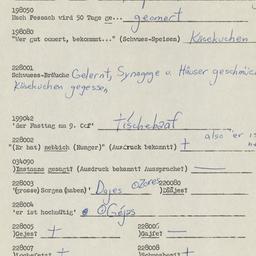 198050
Nach Pessach wird 50 Tage ge... geomert
198080
"Wer gut oomert, bekommt..." (Schwues-Speisen) Käsekuchen
228001
Schwuess-Bräuche Gelernt, Synagoge u. Häuser geschmüc
Käsekuchen gegessen
199042
'der Fasttag am 9. Oof' Tischebaaf
also er i
228002
"(Er hat) nebbich (Hunger)" (Ausdruck bekannt?) +
034090
)Instanz gesagt? (Ausdruck bekannt? Aussprache?) —
228003
'(grosse)Sorgen(haben)' Dajes Zores 220080
)Dååjes?
228004
'er ist hochmütig' Géjes
228005
)Gejes? +
228006
)Gajfe? —
228007
228008